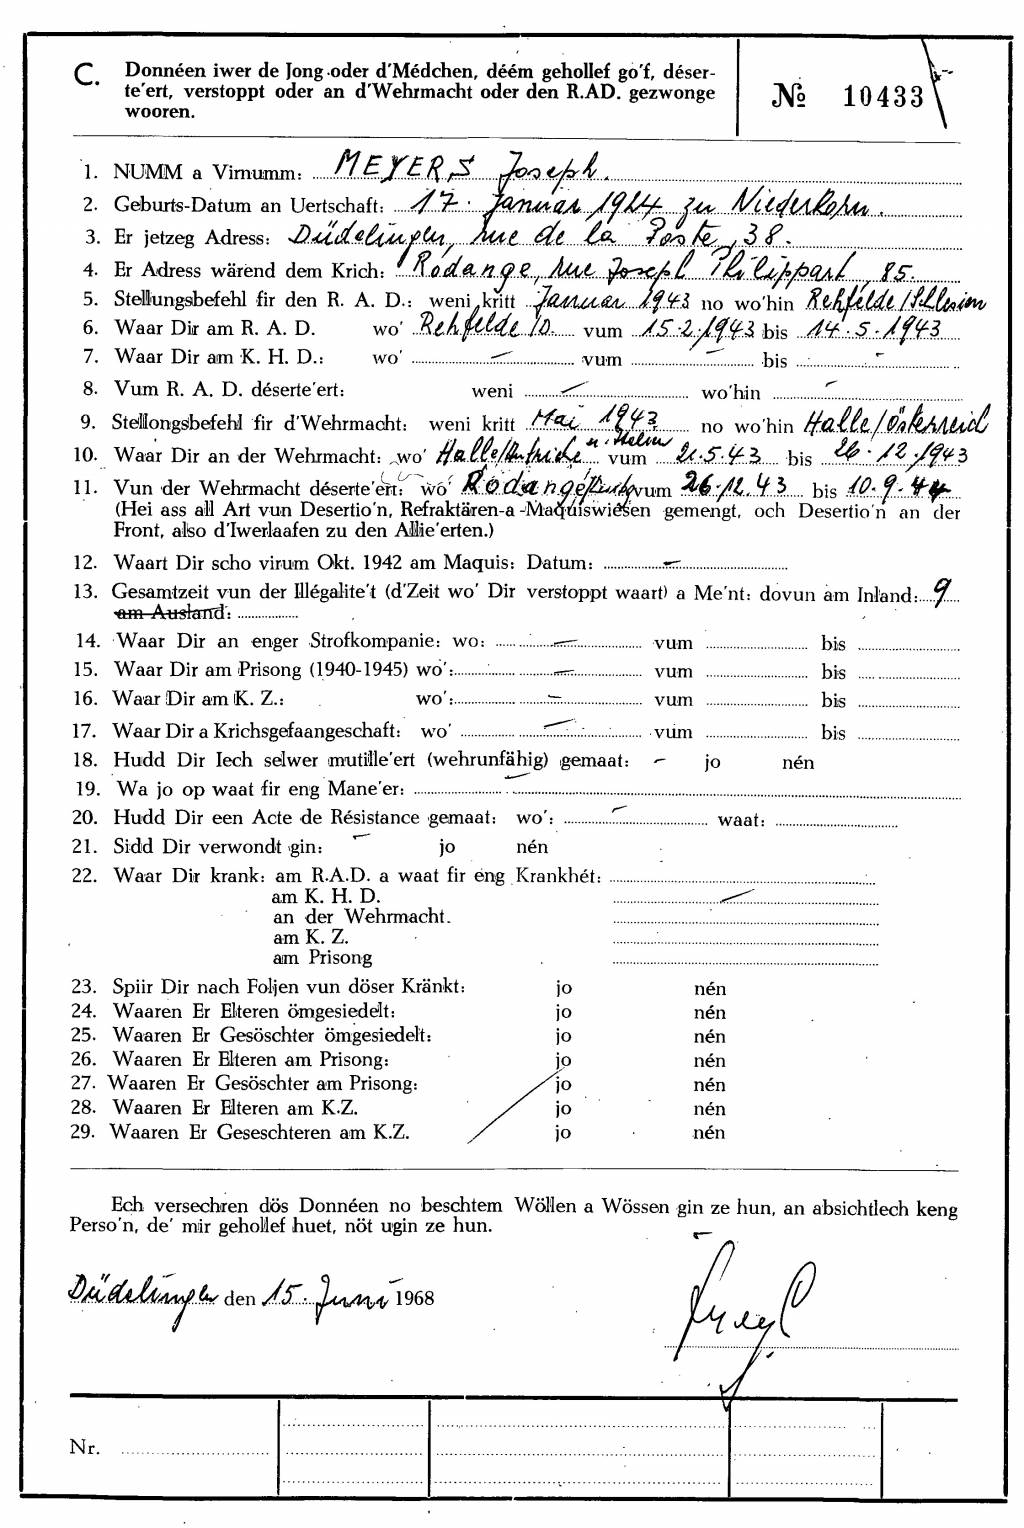 C. Donnéen iwer de Jong oder d'Médchen, déém gehollef go'f, déser-
te'ert, verstoppt oder an d'Wehrmacht oder den R.AD. gezwonge
wooren.
№ 10433
1. NUMM a Virnumm: MEYERS Joseph.
2. Geburts-Datum an Uertschaft: 17. Januar 1924 zu Niederkorn.
3. Er jetzeg Adress: Düdelingen, rue de la Poste, 38.
4. Er Adress wärend dem Krich: Rodange, rue Joseph Philippart 85.
5. Stellungsbefehl fir den R. A. D.: weni kritt Januar 1943 no wo'hin Rehfelde/Schlesien
6. Waar Dir am R. A. D. wo' Rehfelde/O. vum 15.2.1943 bis 14.5.1943
7. Waar Dir am K. H. D.: wo' — vum — bis -
8. Vum R. A. D. déserte'ert: weni — wo'hin -
9. Stellongsbefehl fir d'Wehrmacht: weni kritt Mai 1943 no wo'hin Halle/Österreich
10. Waar Dir an der Wehrmacht: wo' Halle/Autriche u. vum 21.5.43 bis 26.12.1943
11. Vun der Wehrmacht déserte'ert: wo' Rodange vum 26.12.43 bis 10.9.44
(Hei ass all Art vun Desertio'n, Refraktären-a -Maquiswiesen gemengt, och Desertio'n an der
Front, also d'Iwerlaafen zu den Allie'erten.)
12. Waart Dir scho virum Okt. 1942 am Maquis: Datum: —
13. Gesamtzeit vun der Illégalite't (d'Zeit wo' Dir verstoppt waart) a Me'nt: dovun am Inland: 9
am Ausland:
14. Waar Dir an enger Strofkompanie: wo: — vum bis
15. Waar Dir am Prisong (1940-1945) wo': — vum bis
16. Waar Dir am K. Z.: wo': — vum bis
17. Waar Dir a Krichsgefaangeschaft: wo' — vum bis
18. Hudd Dir Iech selwer mutille'ert (wehrunfähig) gemaat: - jo nén
19. Wa jo op waat fir eng Mane'er: —
20. Hudd Dir een Acte de Résistance gemaat: wo': — waat:
21. Sidd Dir verwondt gin: — jo nén
22. Waar Dir krank: am R.A.D. a waat fir eng Krankhét:
am K. H. D. —
an der Wehrmacht.
am K. Z.
am Prisong
23. Spiir Dir nach Foljen vun döser Kränkt: jo nén
24. Waaren Er Elteren ömgesiedelt: jo nén
25. Waaren Er Gesöschter ömgesiedelt: jo nén
26. Waaren Er Elteren am Prisong: jo nén
27. Waaren Er Gesöschter am Prisong: jo nén
28. Waaren Er Elteren am K.Z. jo nén
29. Waaren Er Geseschteren am K.Z. jo nén
Ech versechren dös Donnéen no beschtem Wöllen a Wössen gin ze hun, an absichtlech keng
Perso'n, de' mir gehollef huet, nöt ugin ze hun.
Düdelingen den 15. Juni 1968
Nr.